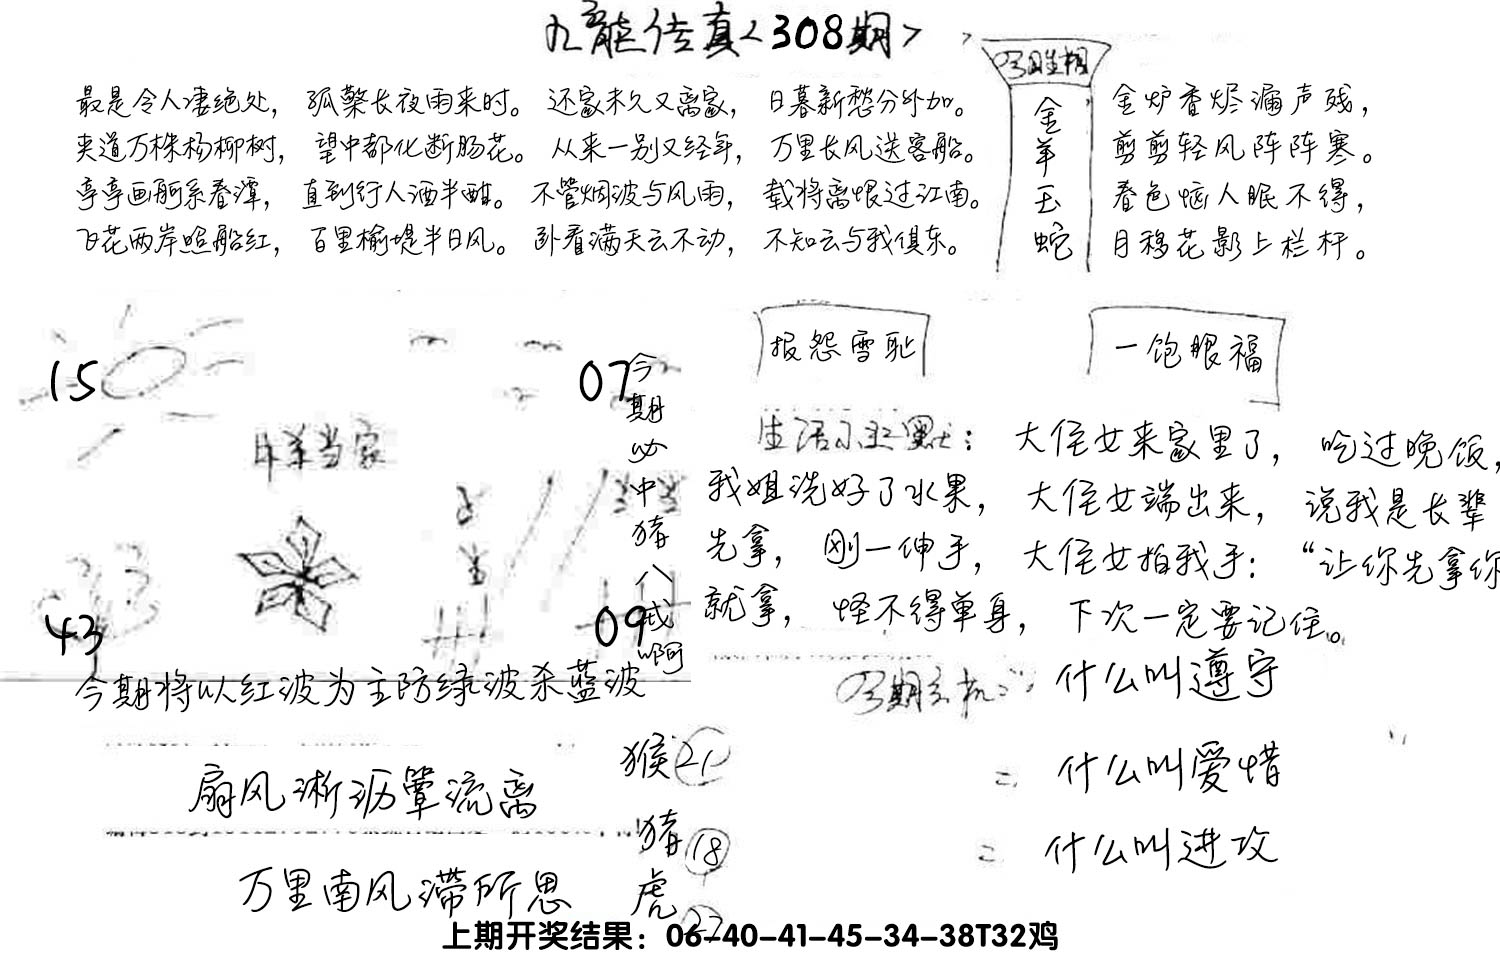 九龙传真<308期>
最是令人凄绝处，孤檠长夜雨来时。还家未久又离家，日暮新愁分外加。
夹道万株杨柳树，望中都化断肠花。从来一别又经年，万里长风送客船。
亭亭画舸系春潭，直到行人酒半酣。不管烟波与风雨，载将离恨过江南。
飞花两岸照船红，百里榆堤半日风。卧看满天云不动，不知云与我俱东。
金羊玉蛇
金炉香烬漏声残，
剪剪轻风阵阵寒。
春色恼人眠不得，
月移花影上栏杆。
15
07
43
09
今期必中猪八戒啊
今期将以红波为主防绿波杀蓝波
报怨雪耻
一饱眼福
生活小幽默：大侄女来家里了，吃过晚饭，
我姐洗好了水果，大侄女端出来，说我是长辈
先拿，刚一伸手，大侄女拍我手：“让你先拿你
就拿，怪不得单身，下次一定要记住。
今期玄机：什么叫遵守
二 什么叫爱惜
二 什么叫进攻
扇风淅沥簟流离
万里南风滞所思
猴 21
猪 18
虎
上期开奖结果：06-40-41-45-34-38T32鸡